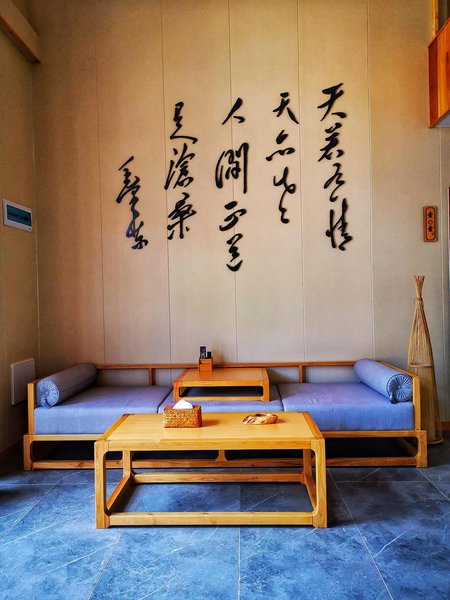 天若有情
天亦老
人间正道
是沧桑
毛泽东